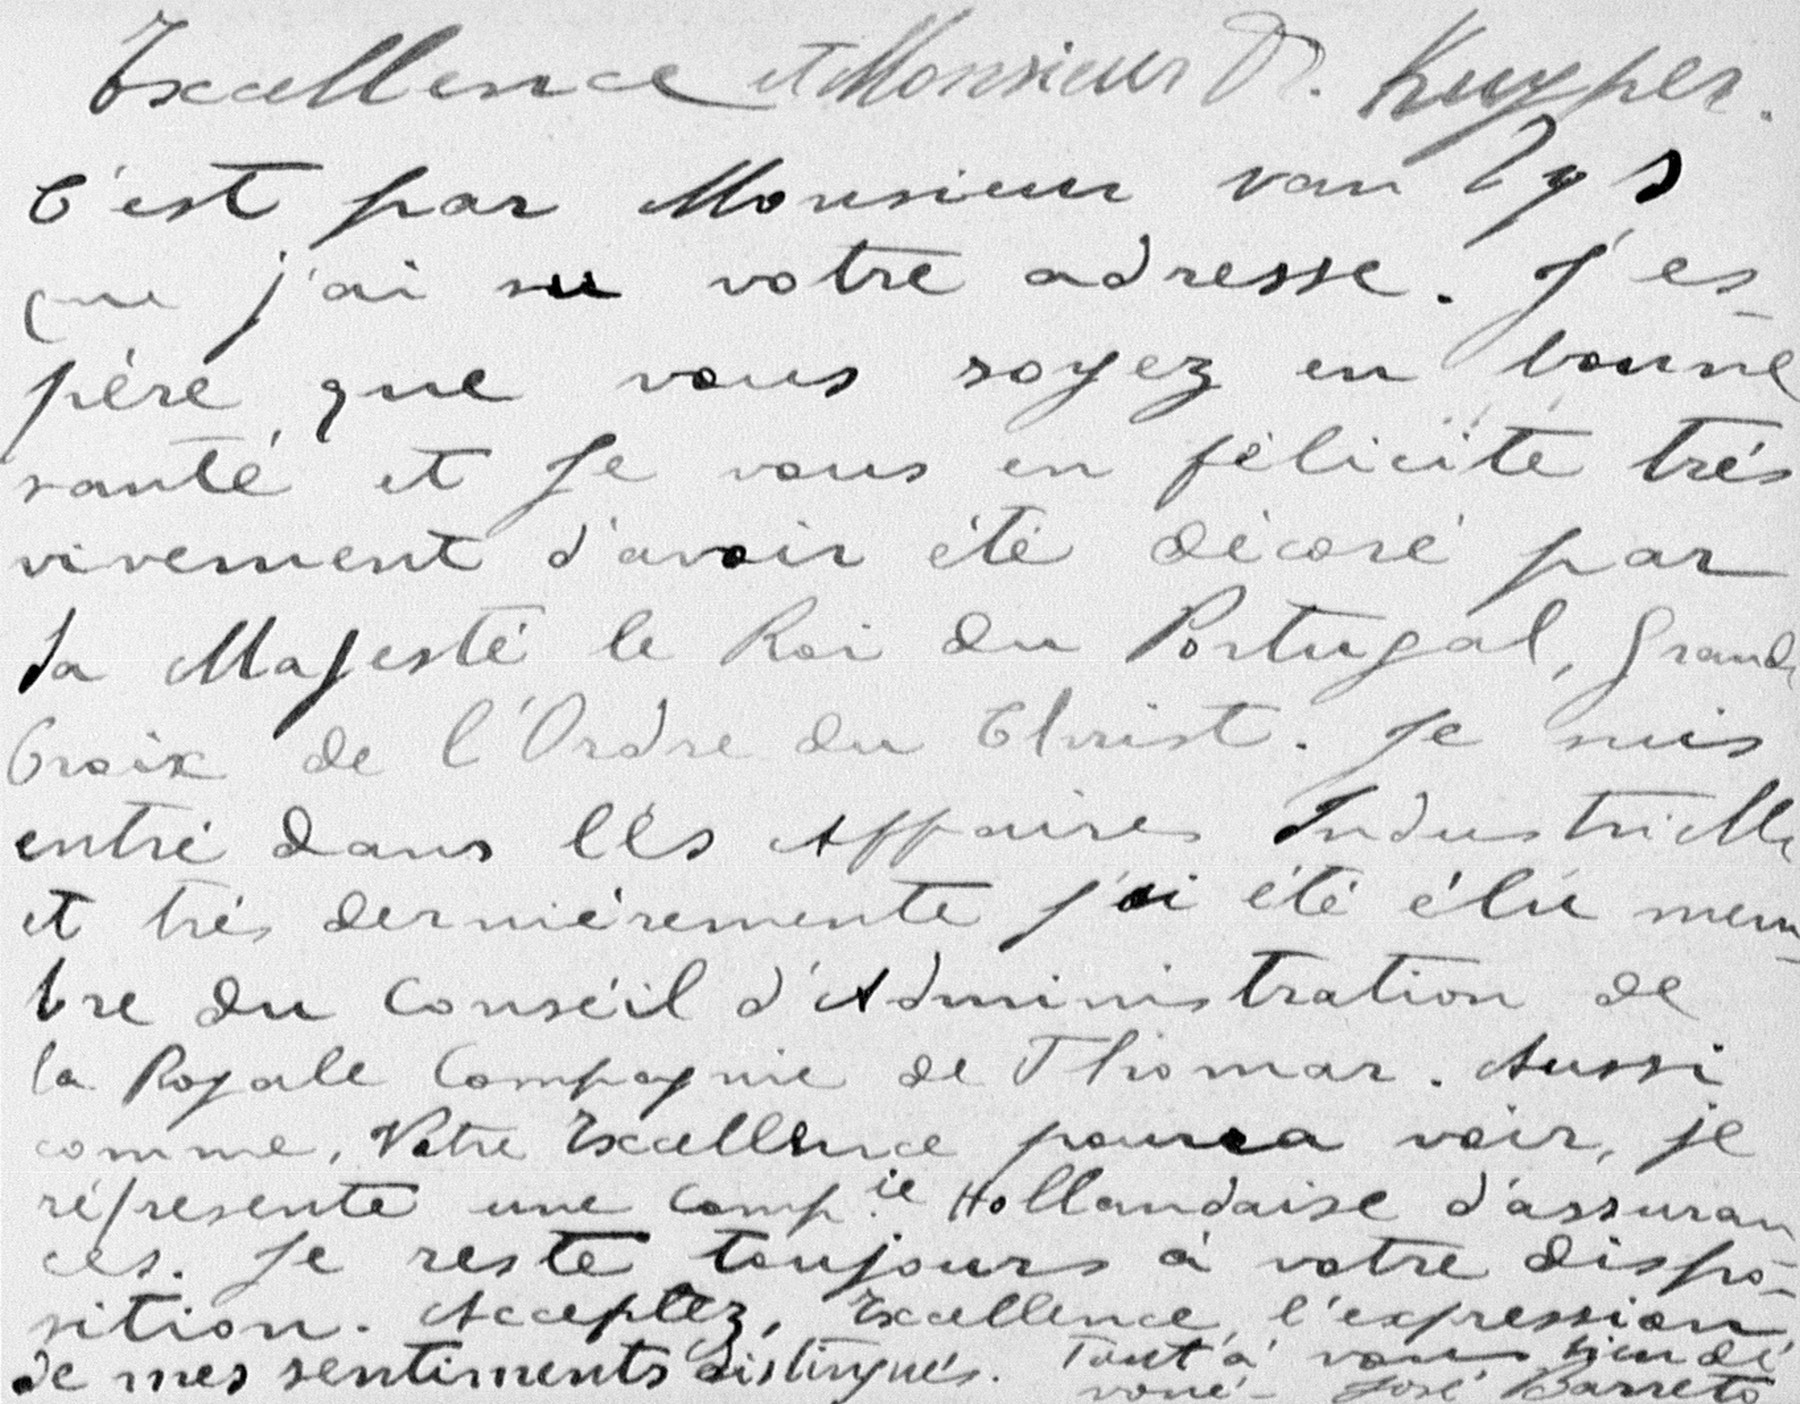 Excellence et Monsieur Dr. Kuyper.
C'est par Monsieur van Zys
que j'ai su votre adresse. J'es-
père que vous soyez en bonne
santé et je vous en félicite trés
vivement d'avoir été décoré par
Sa Majesté le Roi du Portugal, Grand
Croix de l'Ordre du Christ. Je suis
entré dans les Affaires Industrielle
et trés derniéremente j'ai été élu mem-
bre du Conséil d'Administration de
la Royale Compagnie de Thomar. Aussi
comme, Votre Excellence pourra voir, je
répresente une Comp.ie Hollandaise d'assuran
ces. Je reste toujours à votre dispo-
sition. Acceptez, Excellence, l'expression
de mes sentiments distingués. Tout à vous bien dé
voué - José Barreto